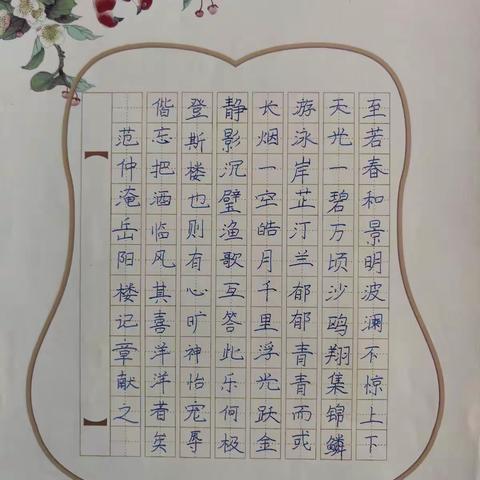 至若春和景明波澜不惊上下
天光一碧万顷沙鸥翔集锦鳞
游泳岸芷汀兰郁郁青青而或
长烟一空皓月千里浮光跃金
静影沉璧渔歌互答此乐何极
登斯楼也则有心旷神怡宠辱
偕忘把酒临风其喜洋洋者矣
范仲淹岳阳楼记章献之